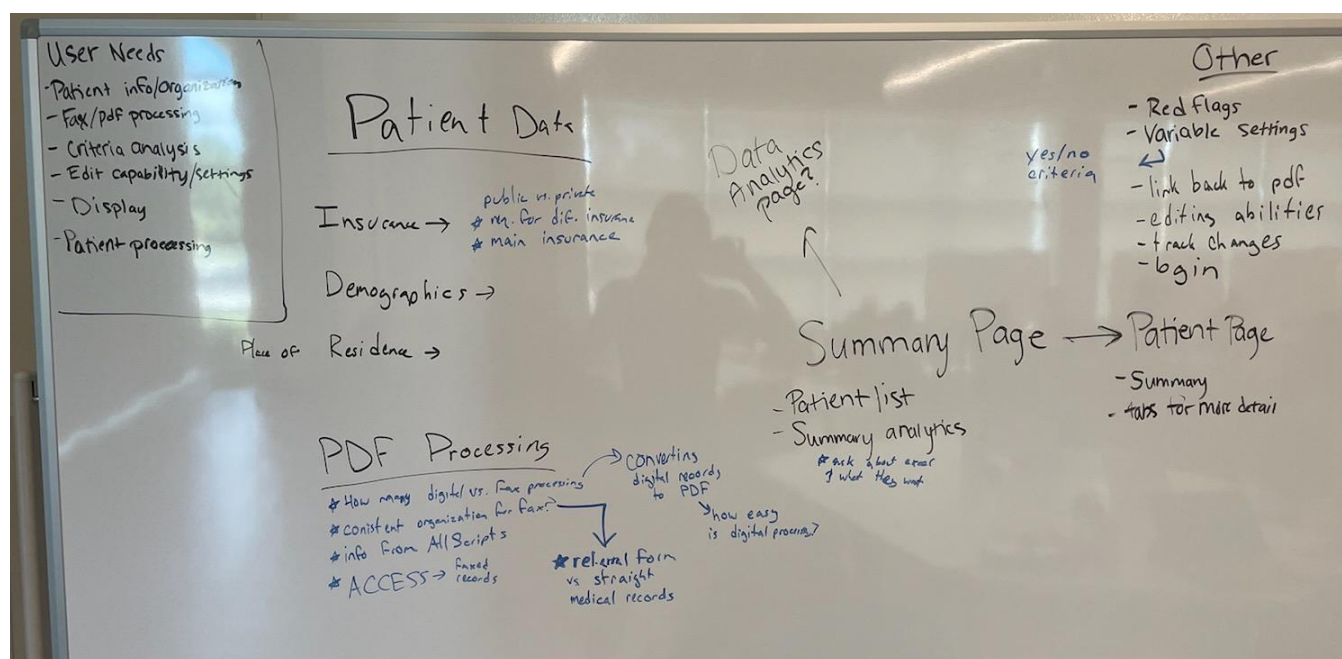 User Needs
-Patient info/organization
-Fax/pdf processing
-Criteria analysis
-Edit capability/settings
-Display
-Patient processing
Patient Data
Insurance →
public vs. private
* req. for dif. insurance
* main insurance
Demographics →
Place of Residence →
PDF Processing
* How many digital vs. Fax processing
* conistent organization for fax?
* info from AllScripts
* ACCESS → faxed
records
converting
digital records
to PDF
how easy
is digital processing?
* referral form
vs straight
medical records
Data
Analytics
page?
Summary Page → Patient Page
-Patient list
-Summary analytics
* ask about excel
& what they want
-Summary
-tabs for more detail
Other
-Red flags
-Variable settings
yes/no
criteria
-link back to pdf
-editing abilities
-track changes
-login